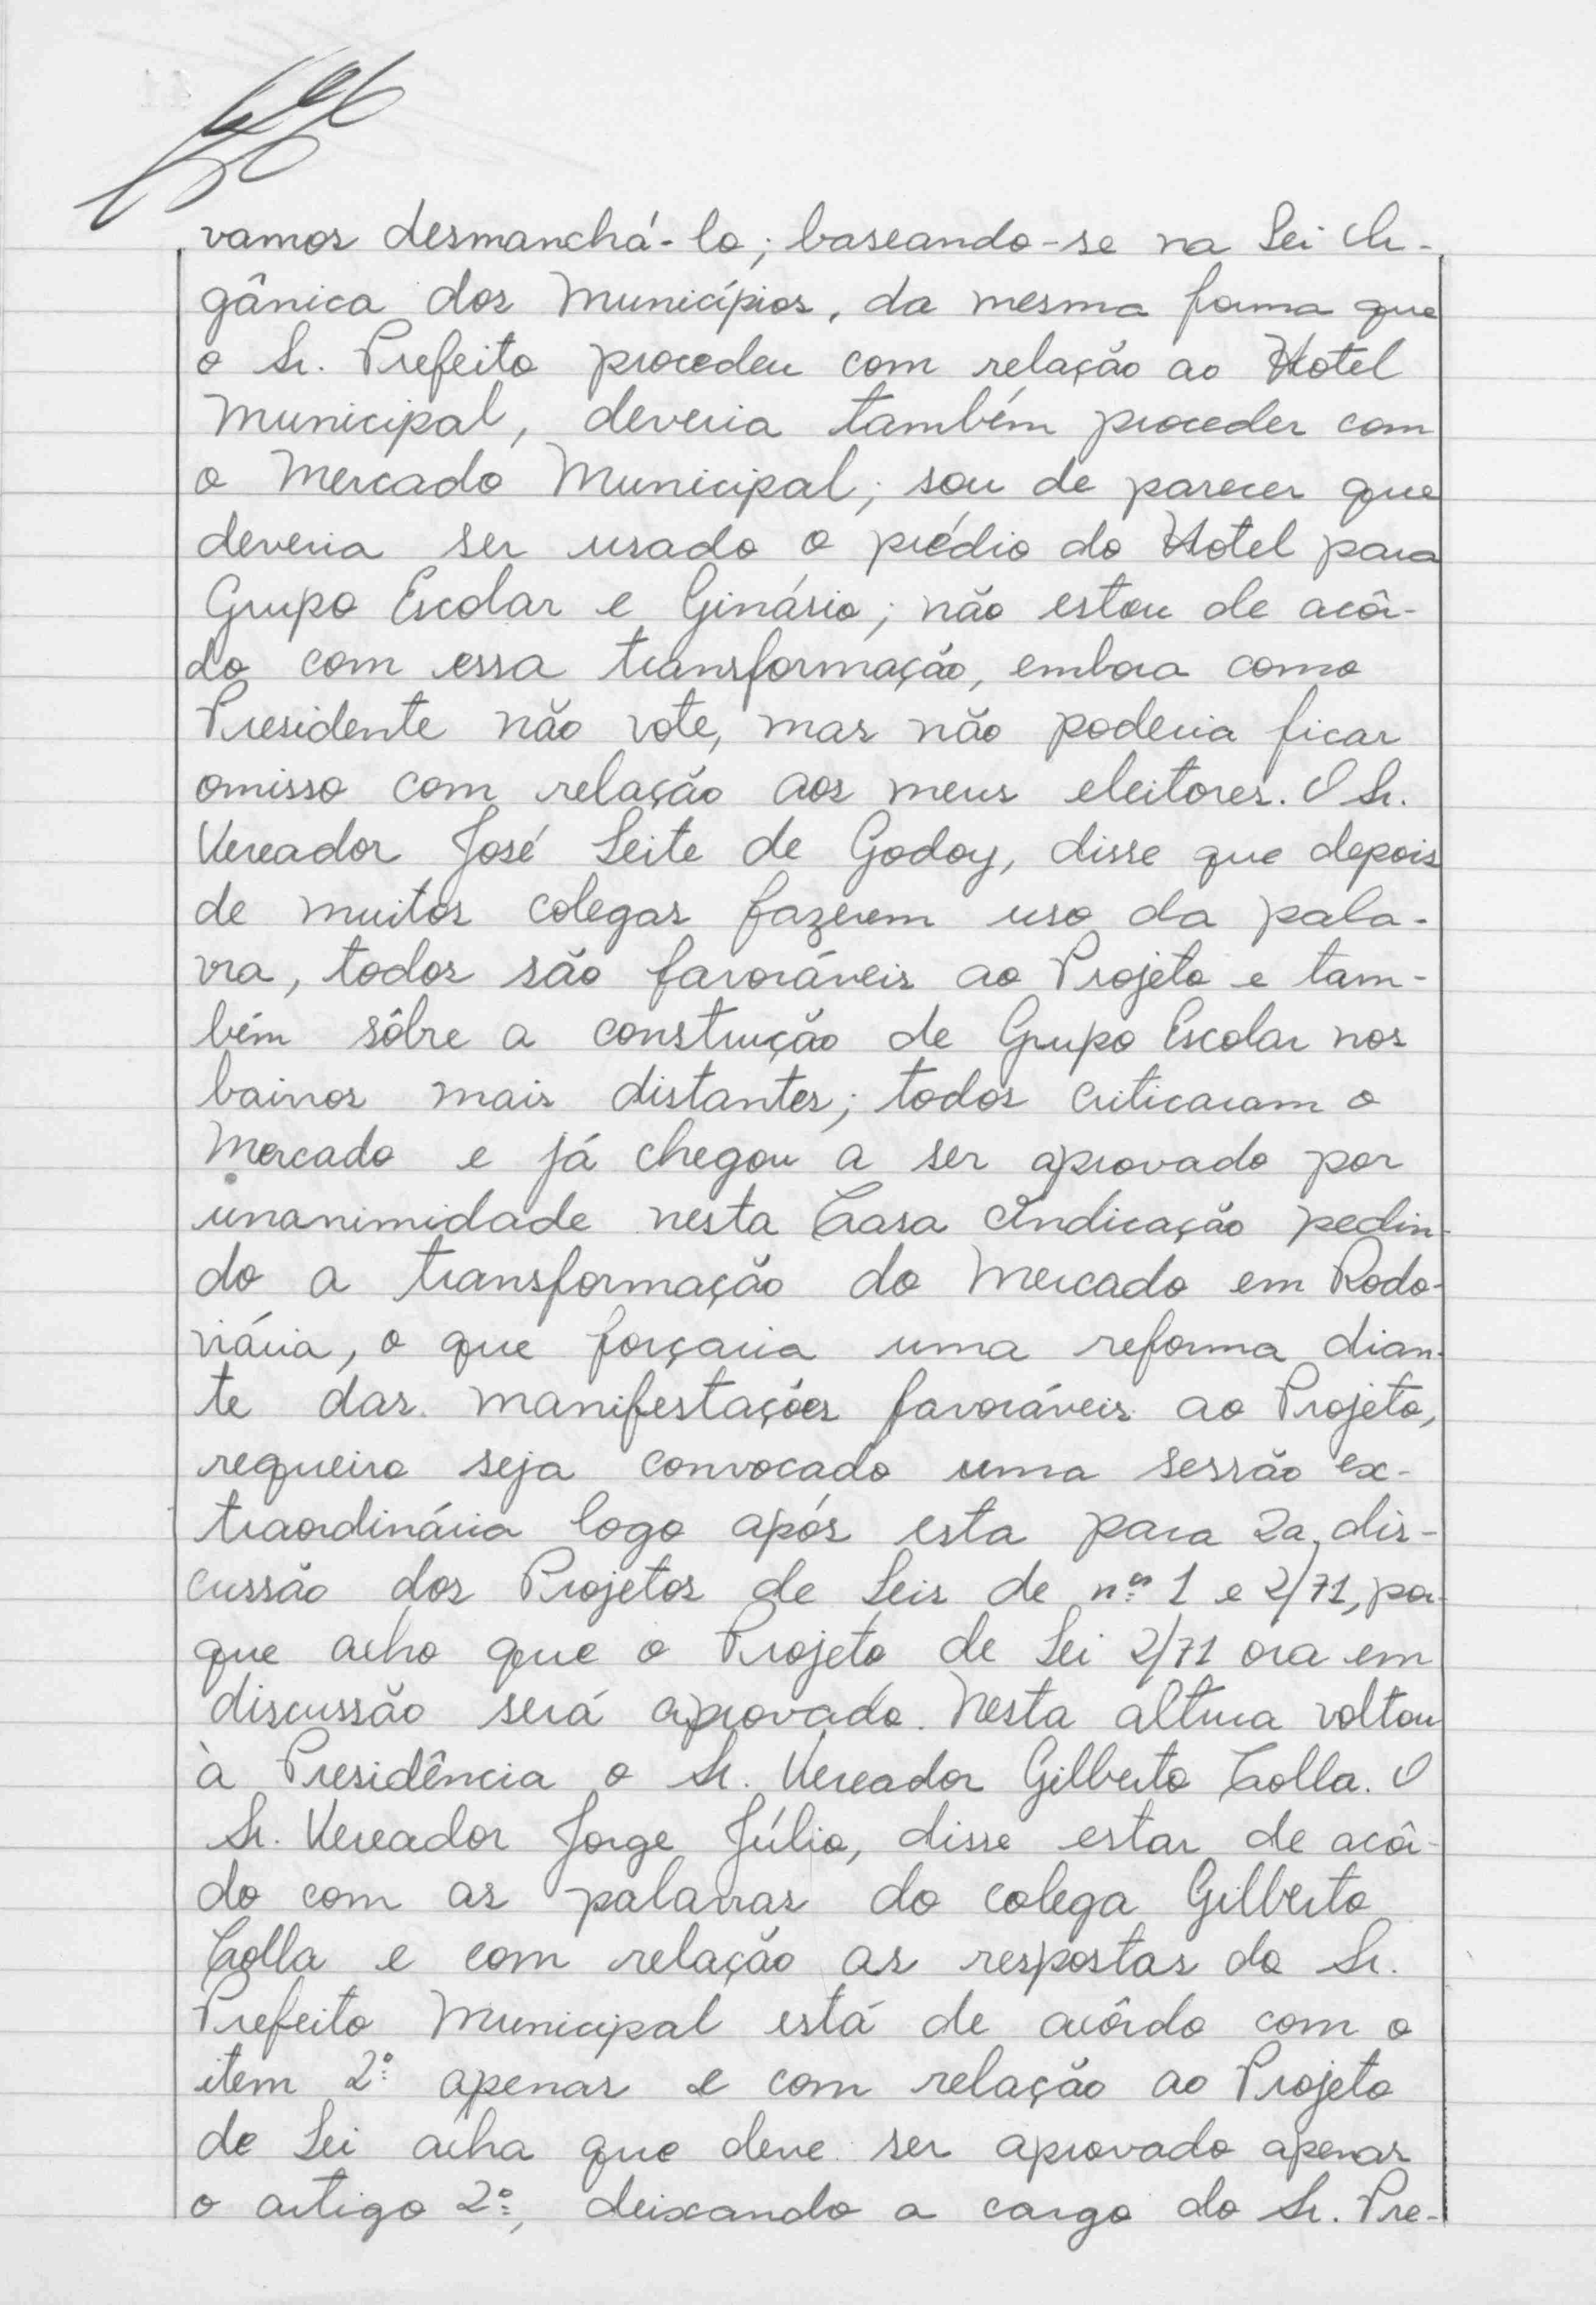 vamos desmanchá-lo; baseando-se na Lei Or-
gânica dos Municípios, da mesma forma que
o Sr. Prefeito procedeu com relação ao Hotel
Municipal, deveria também proceder com
o Mercado Municipal; sou de parecer que
deveria ser usado o prédio do Hotel para
Grupo Escolar e Ginásio; não estou de acôr-
do com essa transformação, embora como
Presidente não vote, mas não poderia ficar
omisso com relação aos meus eleitores. O Sr.
Vereador José Leite de Godoy, disse que depois
de muitos colegas fazerem uso da pala-
vra, todos são favoráveis ao Projeto e tam-
bém sôbre a construção de Grupo Escolar nos
bairros mais distantes; todos criticaram o
Mercado e já chegou a ser aprovado por
unanimidade nesta Casa Indicação pedin-
do a transformação do Mercado em Rodo-
viária, o que forçaria uma reforma dian-
te das manifestações favoráveis ao Projeto,
requeiro seja convocado uma sessão ex-
traordinária logo após esta para 2a. dis-
cussão dos Projetos de Leis de nºs 1 e 2/71, por-
que acho que o Projeto de Lei 2/71 ora em
discussão será aprovado. Nesta altura voltou
à Presidência o Sr. Vereador Gilberto Colla. O
Sr. Vereador Jorge Júlio, disse estar de acôr-
do com as palavras do colega Gilberto
Colla e com relação as respostas do Sr.
Prefeito Municipal está de acôrdo com o
item 2º apenas e com relação ao Projeto
de Lei acha que deve ser aprovado apenas
o artigo 2º, deixando a cargo do Sr. Pre-